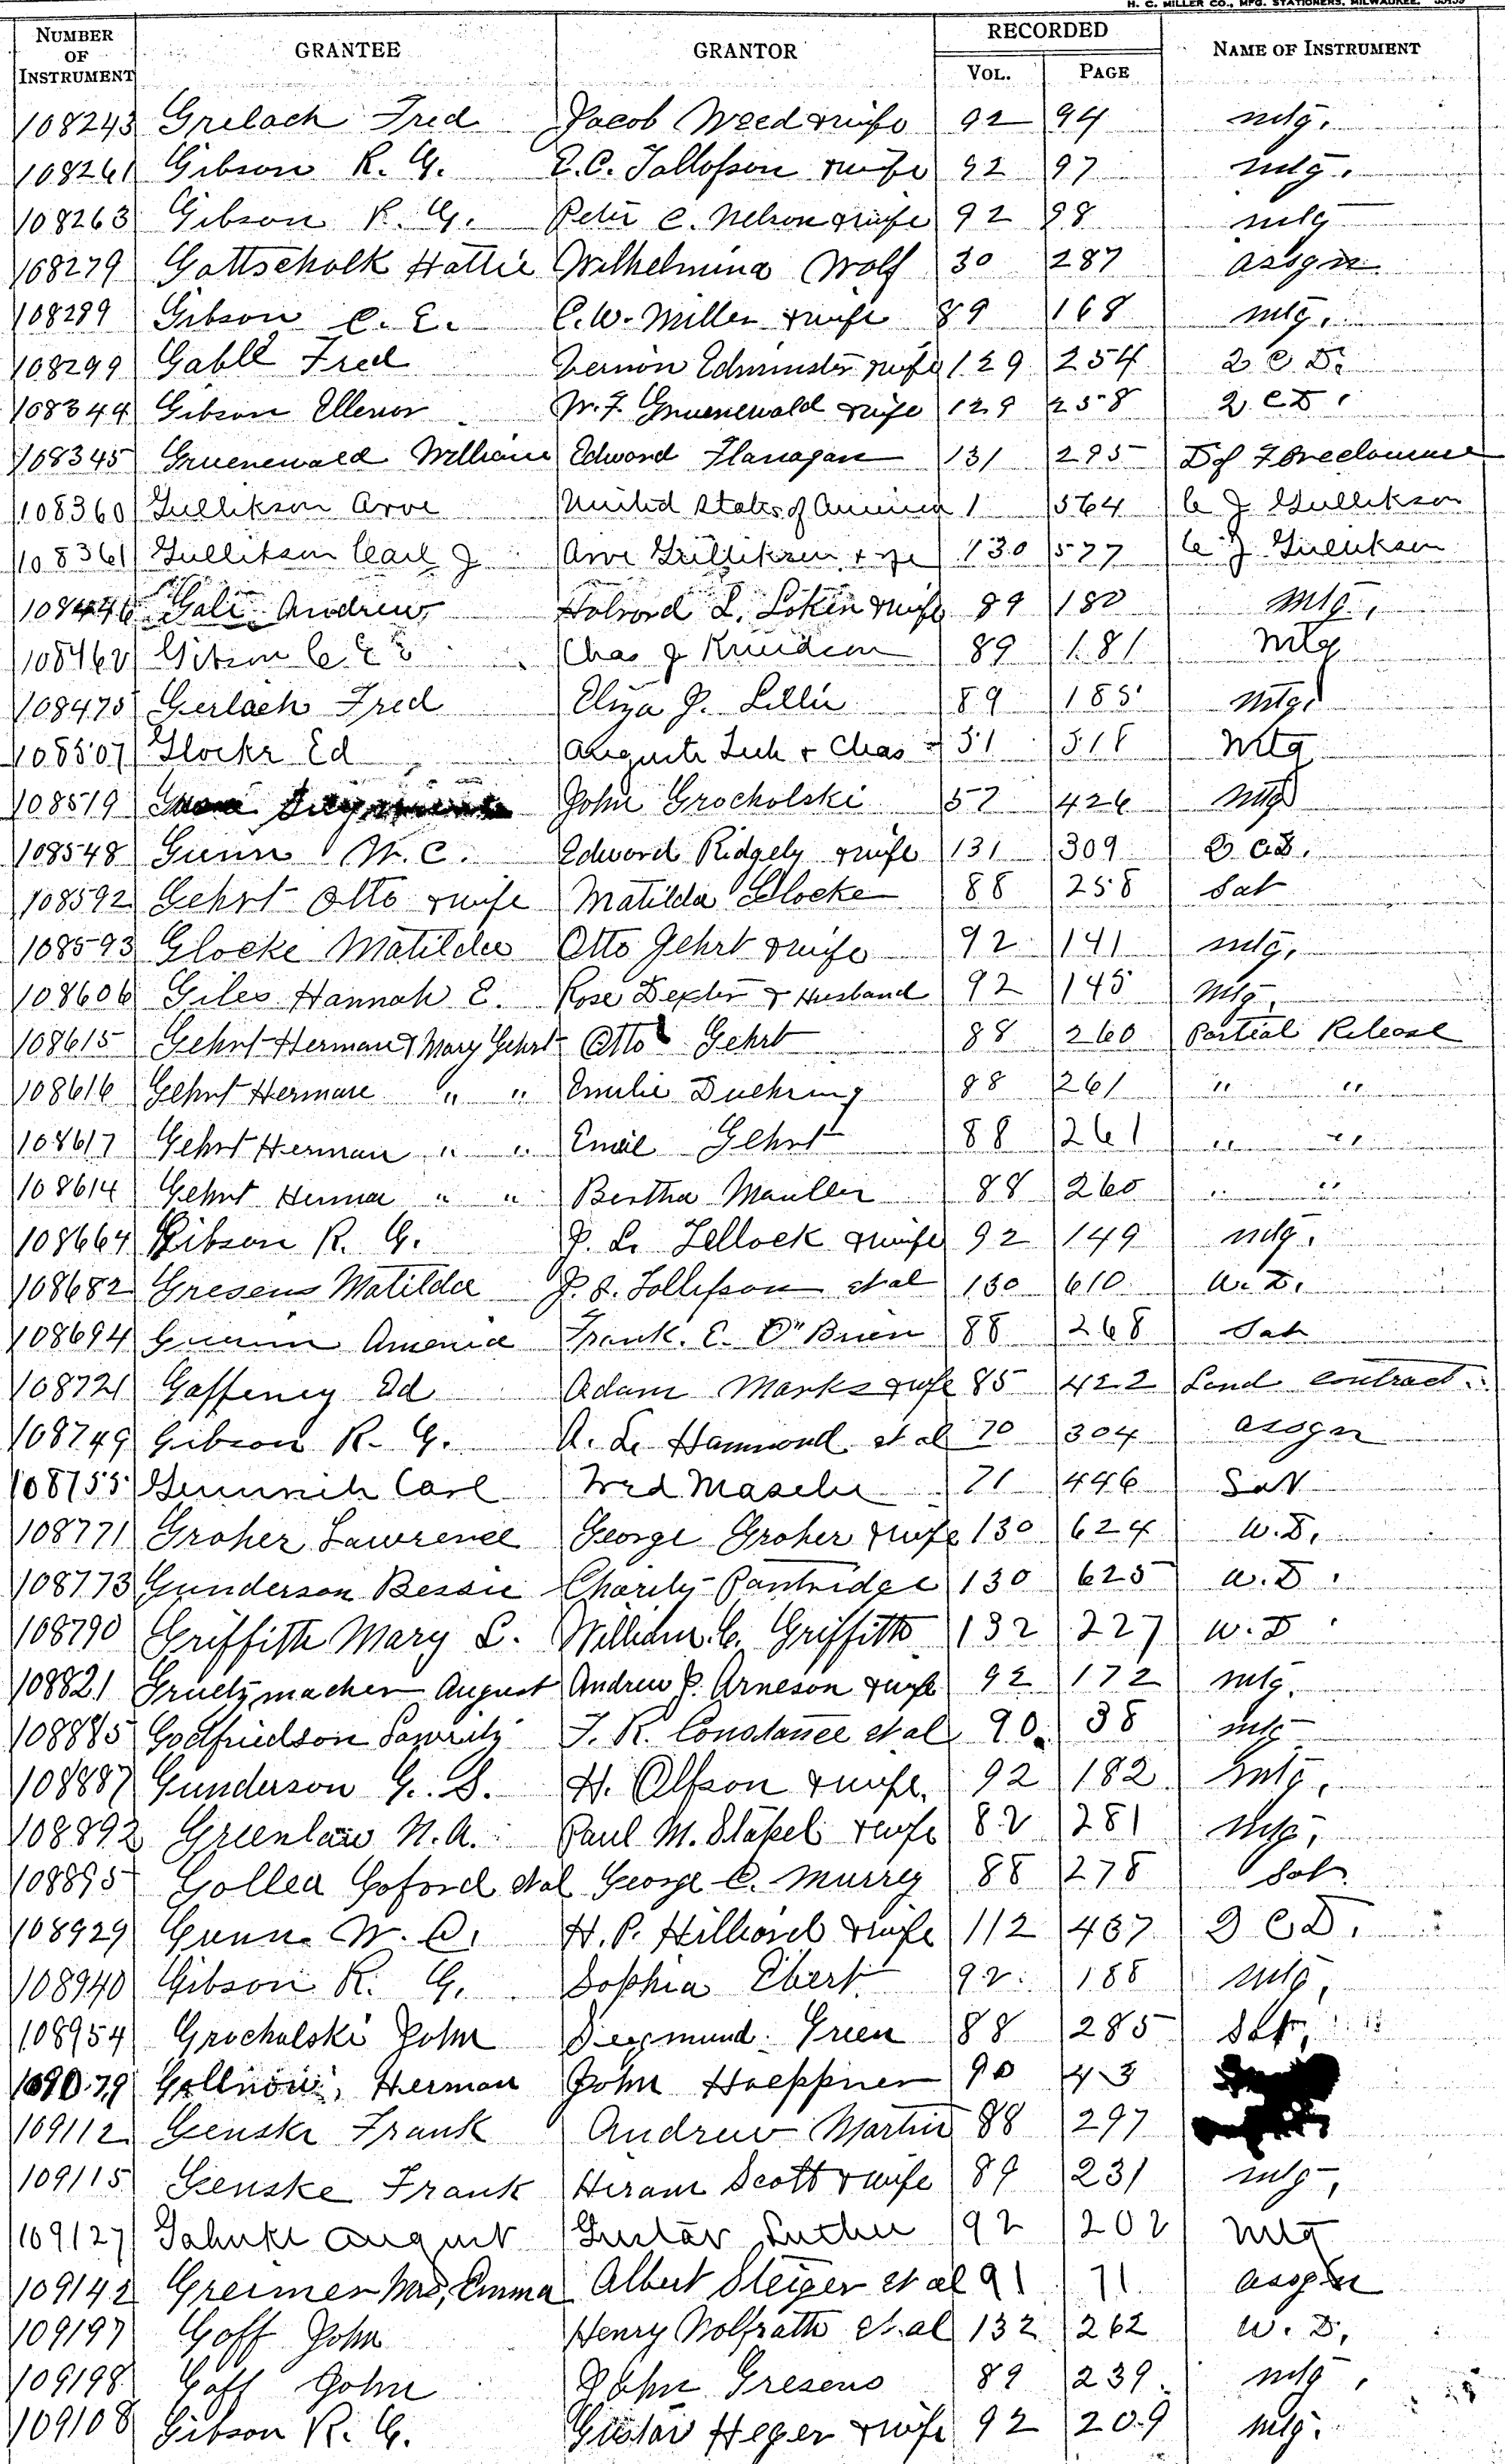 H. C. MILLER CO., MFG. STATIONERS, MILWAUKEE.
NUMBER OF INSTRUMENT GRANTEE GRANTOR RECORDED VOL. PAGE NAME OF INSTRUMENT
108243 Grelach Fred Jacob Weed & wife 92 94 mtg.
108261 Gibson R. G. E.C. Tollofson & wife 92 97 mtg.
108263 Gibson R. G. Peter C. Nelson & wife 92 98 mtg
108279 Gottschalk Hattie Wilhelmina Wolf 30 287 assgn.
108289 Gibson C. E. C.W. Miller & wife 89 168 mtg.
108299 Gable Fred Vernon Edminster & wife 129 254 2 C D.
108344 Gibson Ellenor W. F. Gruenewald & wife 129 258 2 C D.
108345 Gruenewald William Edward Flanagan 131 295 D of Foreclosure
108360 Gullikson Arve United States of America 1 564 C J Gullikson
108361 Gullikson Carl J Arve Gullikson & wf 130 577 C J Gullikson
108446 Gali Andrew Halvord L. Loken & wife 89 180 Mtg.
108462 Gibson C E Chas J Knudson 89 181 Mtg
108475 Gerlach Fred Eliza J. Lillie 89 185 Mtg.
108507 Glockr Ed Auguste Luh & Chas 51 518 Mtg
108519 John Grocholski 57 426 Mtg
108548 Gunn W. C. Edward Ridgely & wife 131 309 2 C.D.
108592 Gehrt Otto & wife Matilda Glocke 88 258 Sat
108593 Glocke Matilda Otto Gehrt & wife 92 141 mtg.
108606 Giles Hannah E. Rose Dexter & Husband 92 145 Mtg.
108615 Gehrt Herman & Mary Gehrt Otto Gehrt 88 260 Partial Release
108616 Gehrt Herman " " Emilie Duehring 88 261 " "
108617 Gehrt Herman " " Emil Gehrt 88 261 " "
108614 Gehrt Herman " " Bertha Mauller 88 260 " "
108664 Gibson R. G. J. L. Zellock & wife 92 149 mtg.
108682 Gresens Matilda P. J. Tollefson et al 130 610 W. D.
108694 Gunn America Frank. E. O'Brien 88 268 Sat
108721 Gaffeney Ed Adam Marks & wife 85 422 Land contract
108749 Gibson R. G. A. L. Hammond et al 70 304 assgn
108755 Carl Fred Masche 71 446 Sat
108771 Groher Lawrence George Groher & wife 130 624 W. D.
108773 Gunderson Bessie Charity Pantridge 130 625 W. D.
108790 Griffith Mary L. William C. Griffith 132 227 W. D
108821 Gruetzmacher August Andrew P. Arneson & wife 92 172 mtg.
108885 Godfriedson Lauritz T. R. Constance et al 90. 38 mtg
108887 Gunderson G. S. H. Olfson & wife. 92 182 mtg.
108892 Greenlaw N. A. Paul M. Stapel & wife 82 281 Mtg.
108895 Gollea Goford et al George C. Murrey 88 278 Sat.
108929 Gunn W. C. H. P. Hilliard & wife 112 467 2 C D.
108940 Gibson R. G. Sophia Ebert 92. 188 Mtg.
108954 Grocholski John Siegmund Green 88 285 Sat.
109079 Gollnow, Herman John Hoeppner 90 43
109112 Genske Frank Andrew Martin 88 297
109115 Genske Frank Hiram Scott & wife 89 231 mtg.
109127 Gahnke August Gustav Luther 92 202 Mtg
109142 Greimer Mrs, Emma Albert Steiger et al 91 71 assgn
109197 Goff John Henry Wolfrath et. al 132 262 W. D.
109198 Goff John John Gresens 89 239. mtg.
109108 Gibson R. G. Gustav Heger & wife 92 209 Mtg.